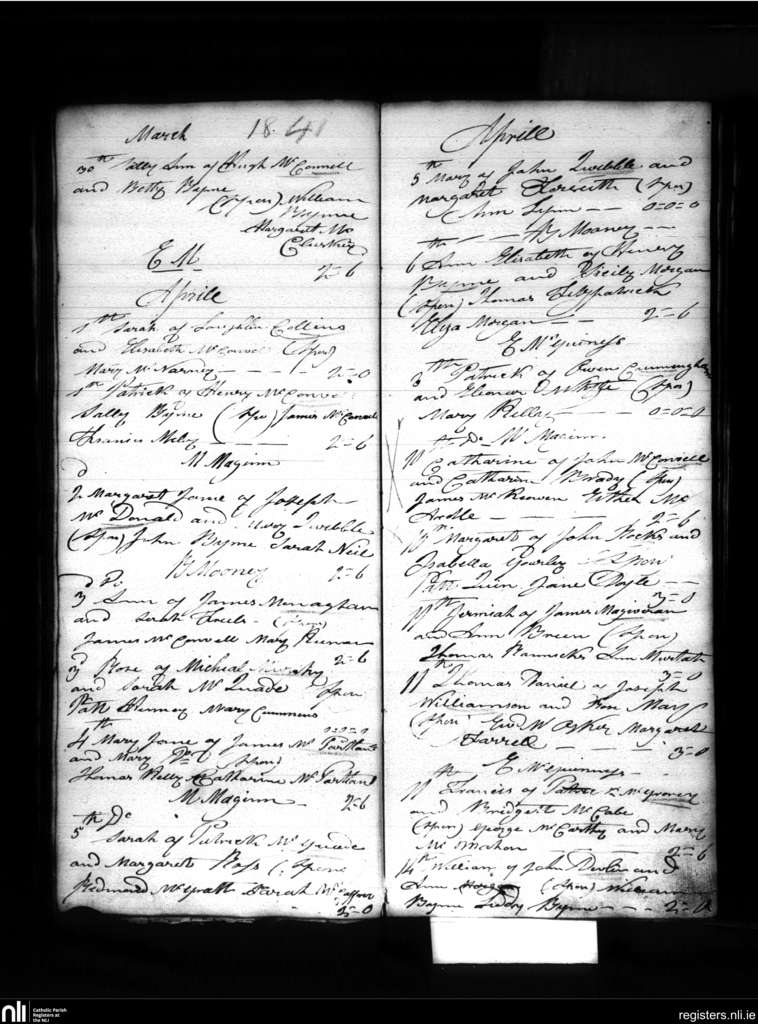 March 1841
30th Sally Ann of Hugh McConnell
and Betty Byrne
(Spon) William
Byrne
Margaret Mc
Cluskey
E M
2=6
Aprill
1th Sarah of Loughlin Collins
and Elisabeth McConvel (Spon)
Mary McNarney 2=0
1th Patrick of Henry McConve
Sally Byrne (Spo) James McConvele
Francis Miley 2=6
M Maginn
d
2 Margaret Jane of Joseph
McDonald and Quebble
(Spon) John Byrne Sarah Neil
B Mooney 2=6
d Do
3 Ann of James Monaghan
and Sarah (Spon)
James McConvell Mary Keenan
2=6
d
3 Rose of Micheal Murphy
and Sarah McQuade Spon
Patt Mary Cummens
0=0=0
th
4 Mary Jane of James McPartland
and Mary Do (Spon)
Thomas Kelly Catharine McPartland
M Maginn 2=6
th Do
5 Sarah of Patrick McQuade
and Margaret Ross (Spon
Redmond McGrath Sarah
2=0
Aprill
5th Mary of John Quebble and
Margaret (Spon)
Ann Lynn 0=0=0
B Mooney
th
6 Ann Elisabeth of Henery
Byrne and Cicily Morgan
(Spon) Thomas Fitzpatrick
Eliza Morgan 2=6
E McGuiness
th
8 Patrick of Owen Cunningham
and Eleanor White (Spon)
Mary Kelley 0=0=0
th Do M Maginn
10 Catharine of John McConvell
and Catharin Brady (Spon)
James McKeowen Esther Mc
Ardle 2=6
10th Margaret of John Rocks and
Isabella Gourley Spon
Patt Quin Jane Boyle
3=0
11th Jermiah of James Magiveran
and Ann Breen (Spon)
Thomas Ann Murtagh
3=0
11th Thomas Daniel of Joseph
Williamson and Rose Mary
(Spon) Margaret
Farrell 3=0
E McGuinness
th
11 Francis of McGroorey
and Bridgert McCabe
(Spon) George McCarthy and Mary
McMahon 2=6
14th William of John Devlin and
Ann (Spon) William
Byrne Liddy Byrne 2=0
nli
Catholic Parish
Registers at
the NLI
registers.nli.ie